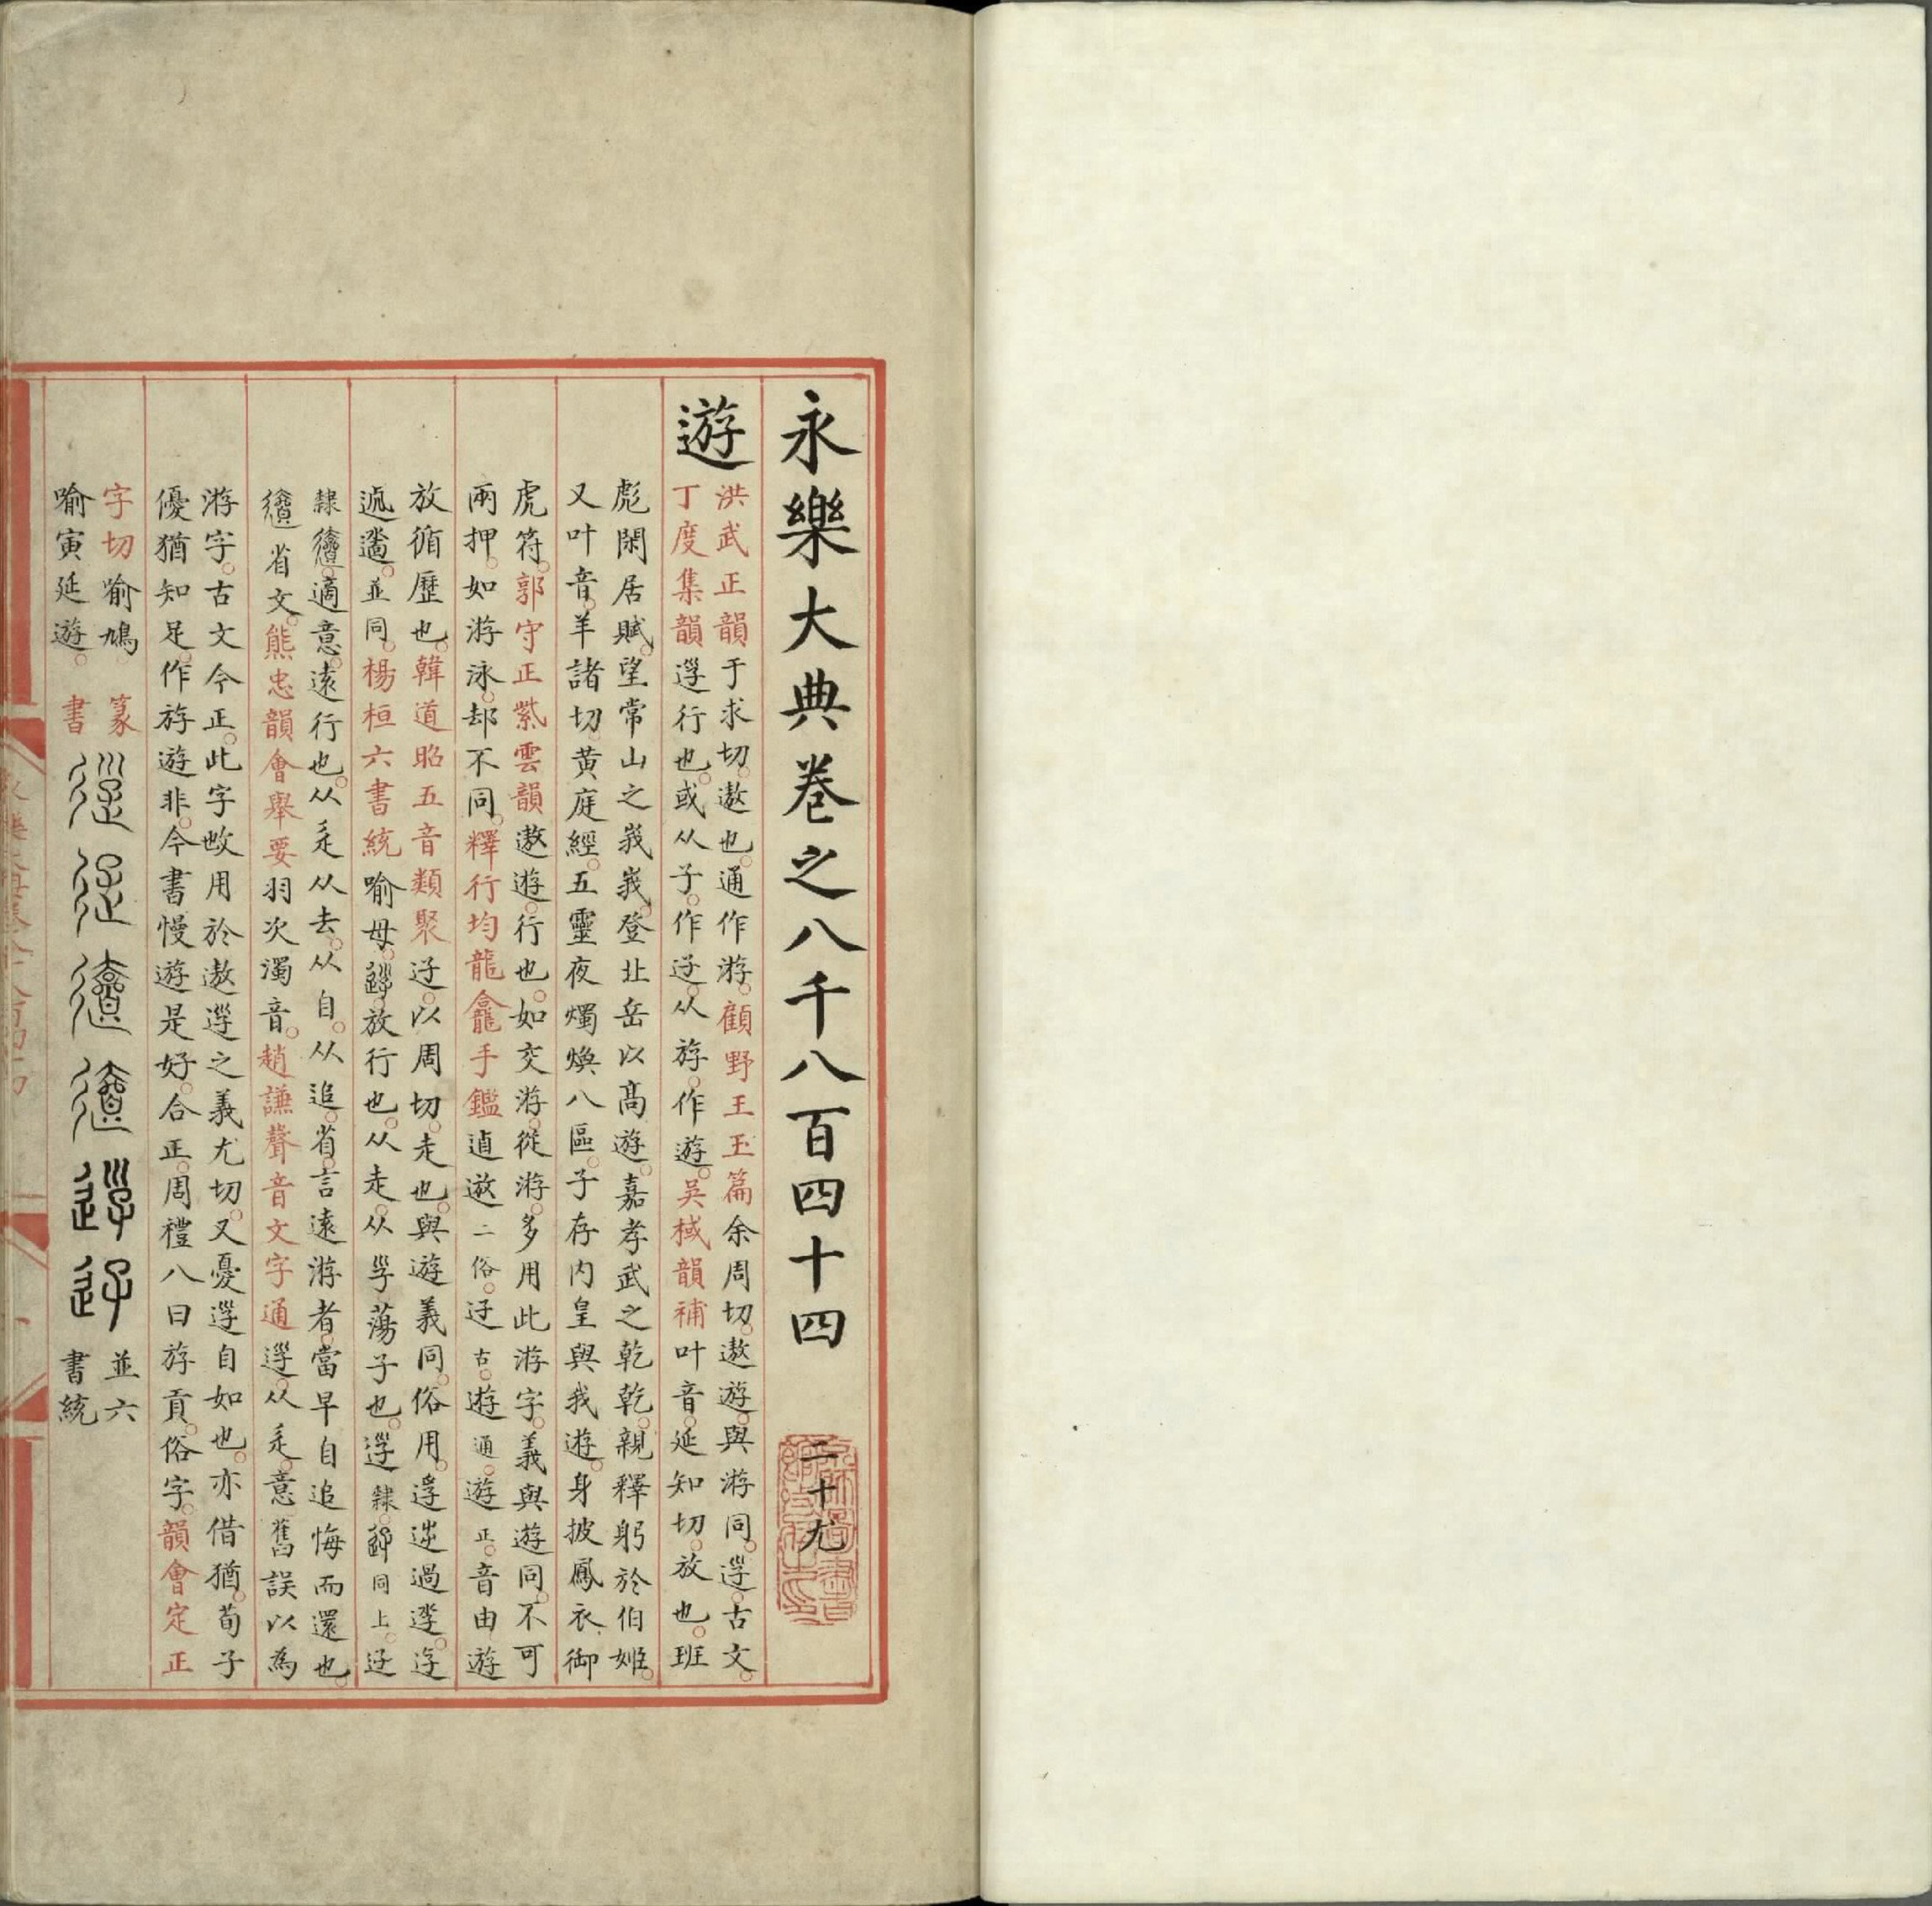 永樂大典卷之八千八百四十四 二十尤
遊
洪武正韻于求切。遨也。通作游。顧野王玉篇余周切。遨遊。與游同。逕古文。
丁度集韻行也。或从子。作迂。从斿。作遊。吳棫韻補叶音。延知切。放也。班
彪閑居賦。望常山之峩峩。登北岳以高遊。嘉孝武之乾乾。親釋躬於伯姬。
又叶音。羊諸切。黃庭經。五靈夜燭煥八區。子存內皇與我遊。身披鳳衣御
虎符。郭守正紫雲韻遨遊。行也。如交游。從游。多用此游字。義與遊同。不可
兩押。如游泳。却不同。釋行均龍龕手鑑二俗。古。遊通。遊正。音由遊
放循歷也。韓道昭五音類聚以周切。走也。與遊義同。俗用。過
並同。楊桓六書統喻母。放行也。从走。从蕩子也。隸。同上。
隸適意遠行也。从辵从去。从自。从追。省。言遠游者。當早自追悔而還也。
省文。熊忠韻會舉要羽次濁音。趙謙聲音文字通从辵。意舊誤以為
游字。古文今正。此字用於遨之義尤切。又憂自如也。亦借猶。荀子
優猶知足。作斿遊非。今書慢遊是好。合正。周禮八曰斿貢。俗字。韻會定正
字切喻鳩
喻寅延遊。
篆書
並六書統